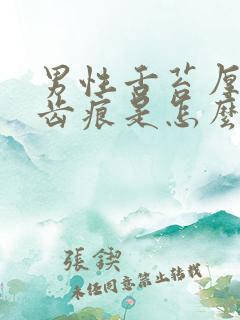 男性舌苔厚
齿痕是怎麼
張鍥
未经同意禁止转载